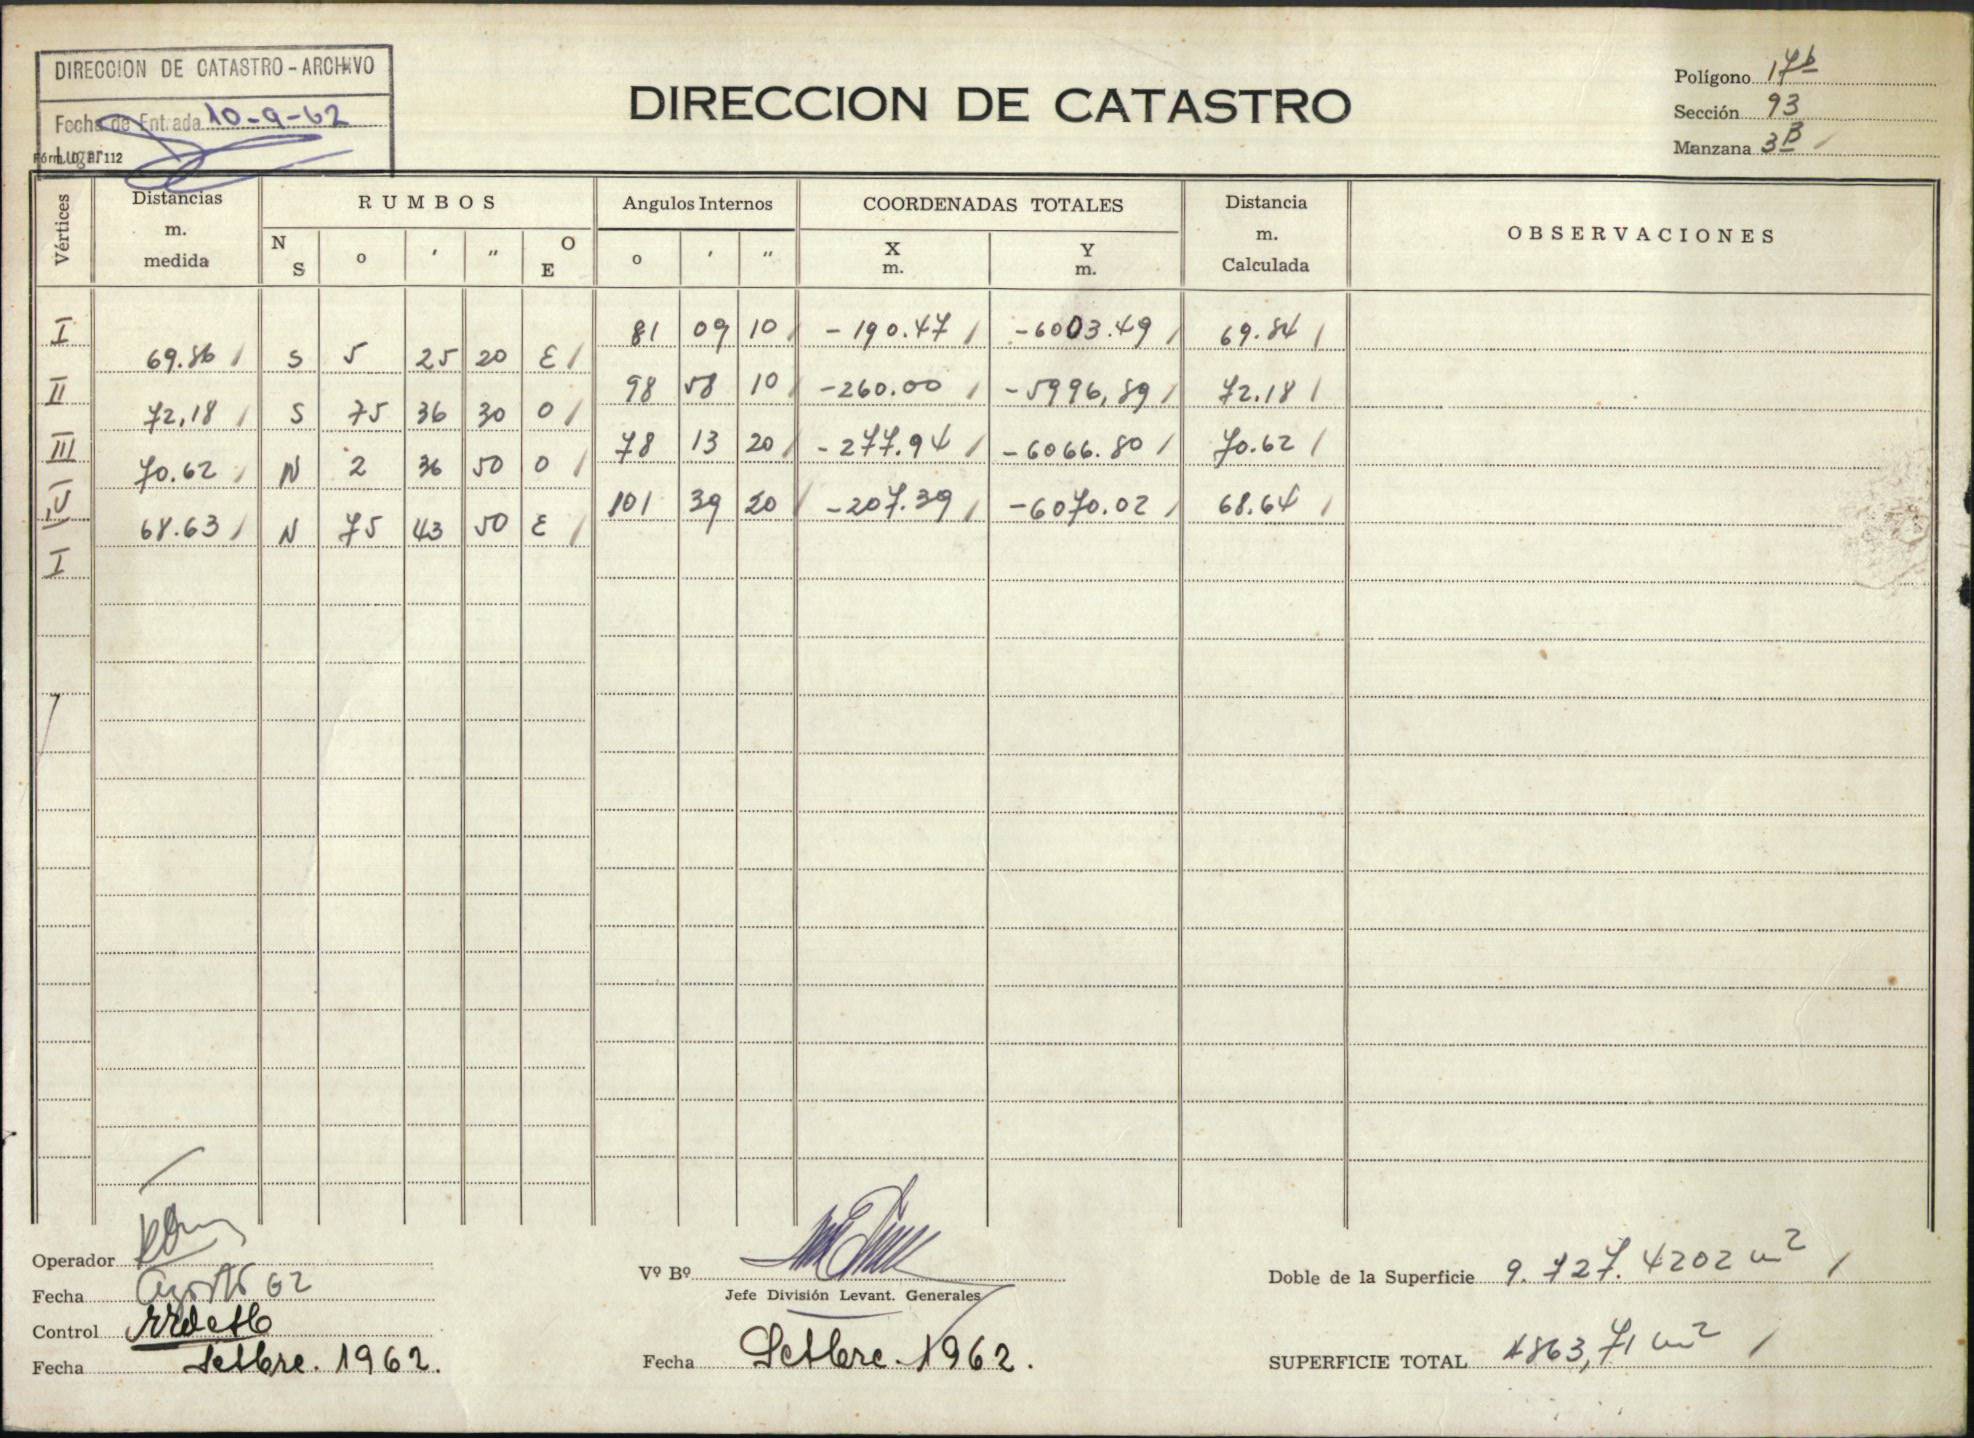 DIRECCION DE CATASTRO - ARCHIVO
Fecha de Entrada 10-9-62
Lugar
Fórm. D. P. 112
DIRECCION DE CATASTRO
Polígono 17b
Sección 93
Manzana 3B
Vértices
Distancias
m.
medida
RUMBOS
N
S
o
'
"
O
E
Angulos Internos
o
'
"
COORDENADAS TOTALES
X
m.
Y
m.
Distancia
m.
Calculada
OBSERVACIONES
I 81 09 10 -190.47 -6003.49 69.84
69.86 S 5 25 20 E
II 98 58 10 -260.00 -5996,89 72.18
72,18 S 75 36 30 O
III 78 13 20 -277.94 -6066.80 70.62
70.62 N 2 36 50 O
IV 101 39 20 -207.39 -6070.02 68.64
68.63 N 75 43 50 E
I
Operador
Fecha Agosto 62
Control
Fecha Setbre. 1962.
Vº Bº
Jefe División Levant. Generales
Fecha Setbre. 1962.
Doble de la Superficie 9.727.4202 m2
SUPERFICIE TOTAL 4863,71 m2